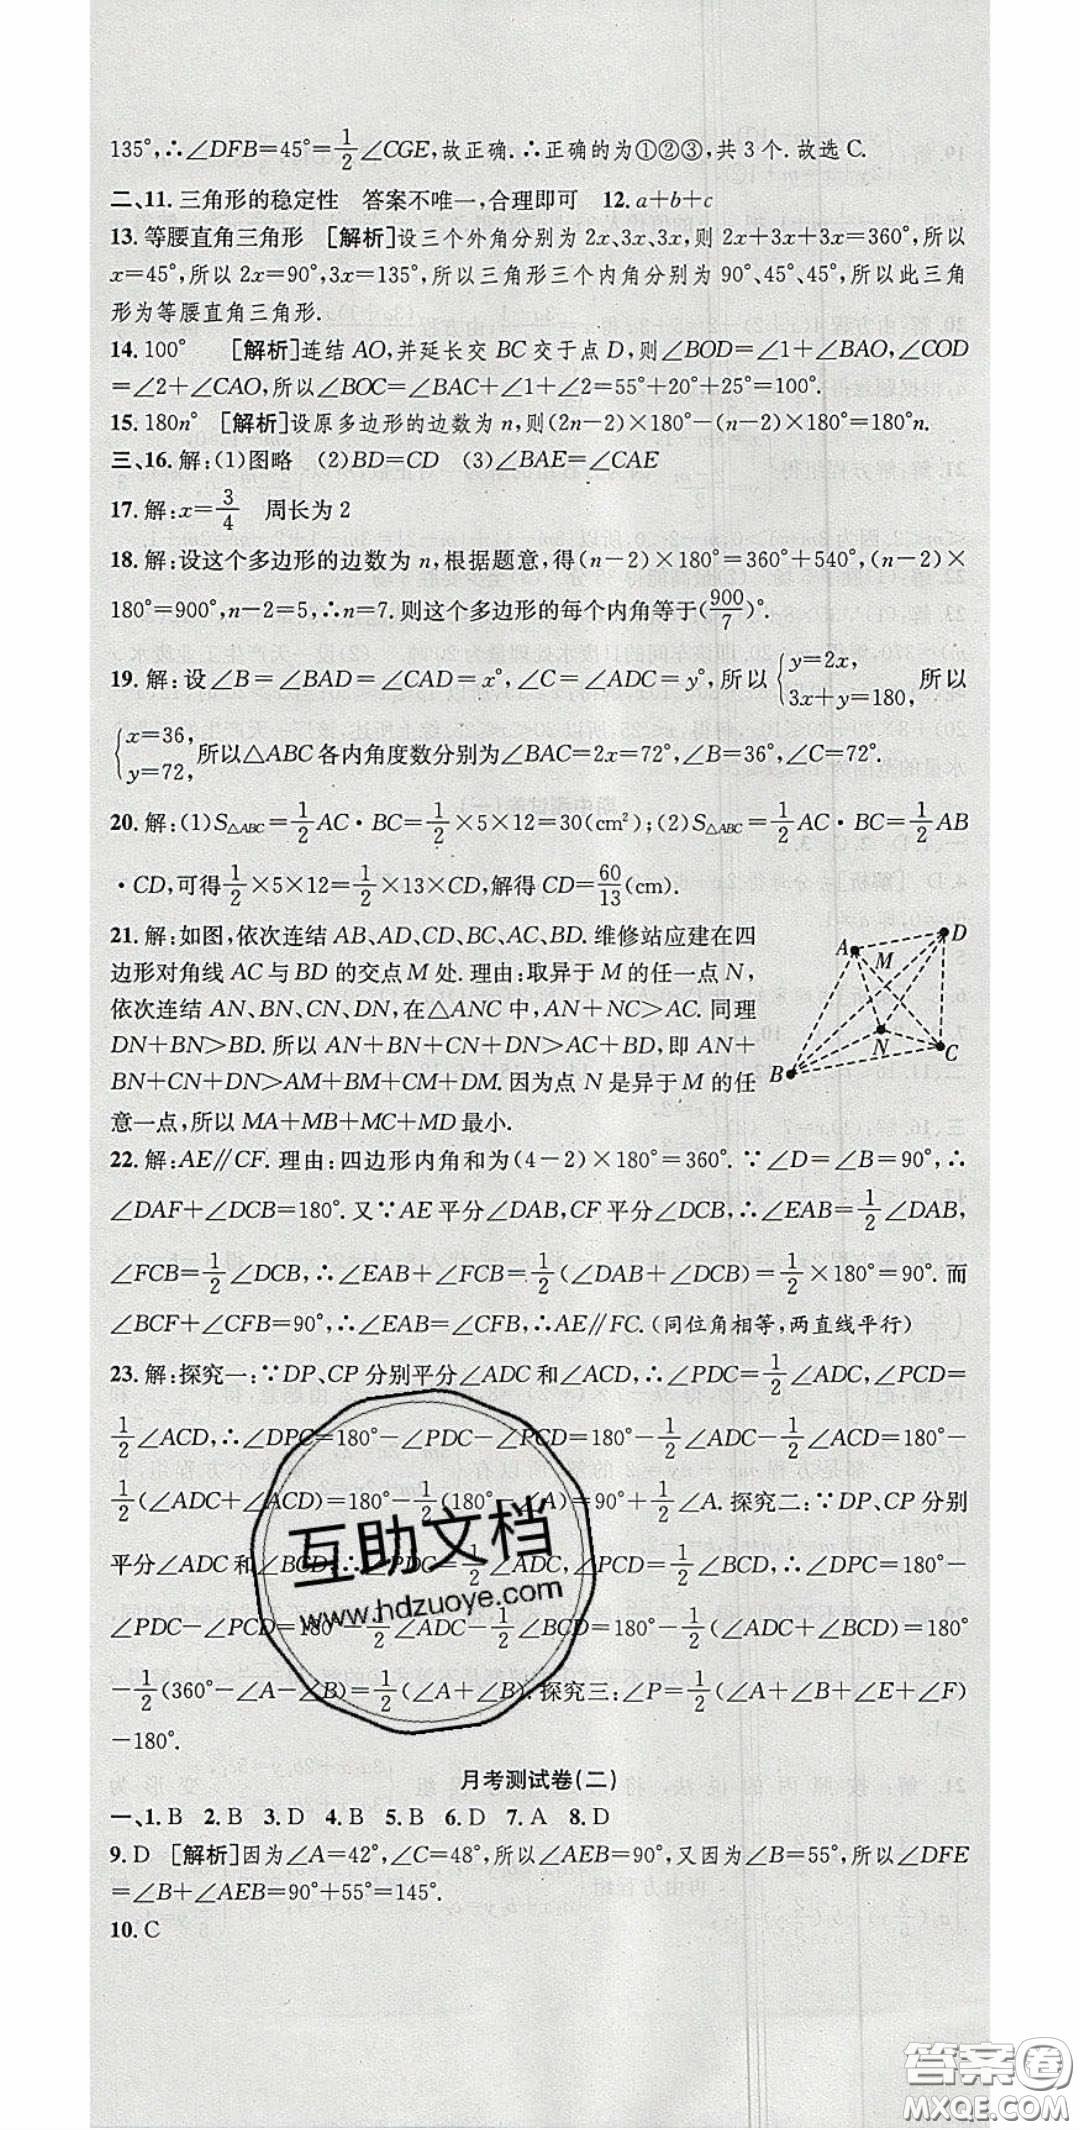 135°,∴∠DFB=45°=1/2∠CGE,故正确.∴正确的为①②③,共 3 个.故选 C.
二、11.三角形的稳定性 答案不唯一,合理即可 12.a+b+c
13.等腰直角三角形 [解析]设三个外角分别为 2x、3x、3x,则 2x+3x+3x=360°,所以
x=45°,所以 2x=90°,3x=135°,所以三角形三个内角分别为 90°、45°、45°,所以此三角
形为等腰直角三角形.
14.100° [解析]连结 AO,并延长交 BC 交于点 D,则∠BOD=∠1+∠BAO,∠COD
=∠2+∠CAO,所以∠BOC=∠BAC+∠1+∠2=55°+20°+25°=100°.
15.180n° [解析]设原多边形的边数为 n,则(2n-2)×180°-(n-2)×180°=180°n.
三、16.解:(1)图略 (2)BD=CD (3)∠BAE=∠CAE
17.解:x=3/4 周长为 2
18.解:设这个多边形的边数为 n,根据题意,得(n-2)×180°=360°+540°,(n-2)×
180°=900°,n-2=5,∴n=7.则这个多边形的每个内角等于(900/7)°.
19.解:设∠B=∠BAD=∠CAD=x°,∠C=∠ADC=y°,所以{y=2x, 3x+y=180,所以
{x=36, y=72,所以△ABC 各内角度数分别为∠BAC=2x=72°,∠B=36°,∠C=72°.
20.解:(1)S△ABC=1/2AC·BC=1/2×5×12=30(cm²);(2)S△ABC=1/2AC·BC=1/2AB
·CD,可得1/2×5×12=1/2×13×CD,解得 CD=60/13(cm).
21.解:如图,依次连结 AB、AD、CD、BC、AC、BD.维修站应建在四
边形对角线 AC 与 BD 的交点 M 处.理由:取异于 M 的任一点 N,
依次连结 AN、BN、CN、DN,在△ANC 中,AN+NC>AC.同理
DN+BN>BD.所以 AN+BN+CN+DN>AC+BD,即 AN+
BN+CN+DN>AM+BM+CM+DM.因为点 N 是异于 M 的任
意一点,所以 MA+MB+MC+MD 最小.
A
D
M
N
C
B
22.解:AE∥CF.理由:四边形内角和为(4-2)×180°=360°.∵∠D=∠B=90°,∴
∠DAF+∠DCB=180°.又∵AE 平分∠DAB,CF 平分∠DCB,∴∠EAB=1/2∠DAB,
∠FCB=1/2∠DCB,∴∠EAB+∠FCB=1/2(∠DAB+∠DCB)=1/2×180°=90°.而
∠BCF+∠CFB=90°,∴∠EAB=∠CFB,∴AE∥FC.(同位角相等,两直线平行)
23.解:探究一:∵DP、CP 分别平分∠ADC 和∠ACD,∴∠PDC=1/2∠ADC,∠PCD=
1/2∠ACD,∴∠DPC=180°-∠PDC-∠PCD=180°-1/2∠ADC-1/2∠ACD=180°-
1/2(∠ADC+∠ACD)=180°-1/2(180°-∠A)=90°+1/2∠A.探究二:∵DP、CP 分别
平分∠ADC 和∠BCD,∴∠PDC=1/2∠ADC,∠PCD=1/2∠BCD,∴∠DPC=180°-
∠PDC-∠PCD=180°-1/2∠ADC-1/2∠BCD=180°-1/2(∠ADC+∠BCD)=180°
-1/2(360°-∠A-∠B)=1/2(∠A+∠B).探究三:∠P=1/2(∠A+∠B+∠E+∠F)
-180°.
互助文档
www.hdzuoye.com
月考测试卷(二)
一、1.B 2.B 3.D 4.B 5.B 6.D 7.A 8.D
9.D [解析]因为∠A=42°,∠C=48°,所以∠AEB=90°,又因为∠B=55°,所以∠DFE
=∠B+∠AEB=90°+55°=145°.
10.C
答案卷
MXQE.COM